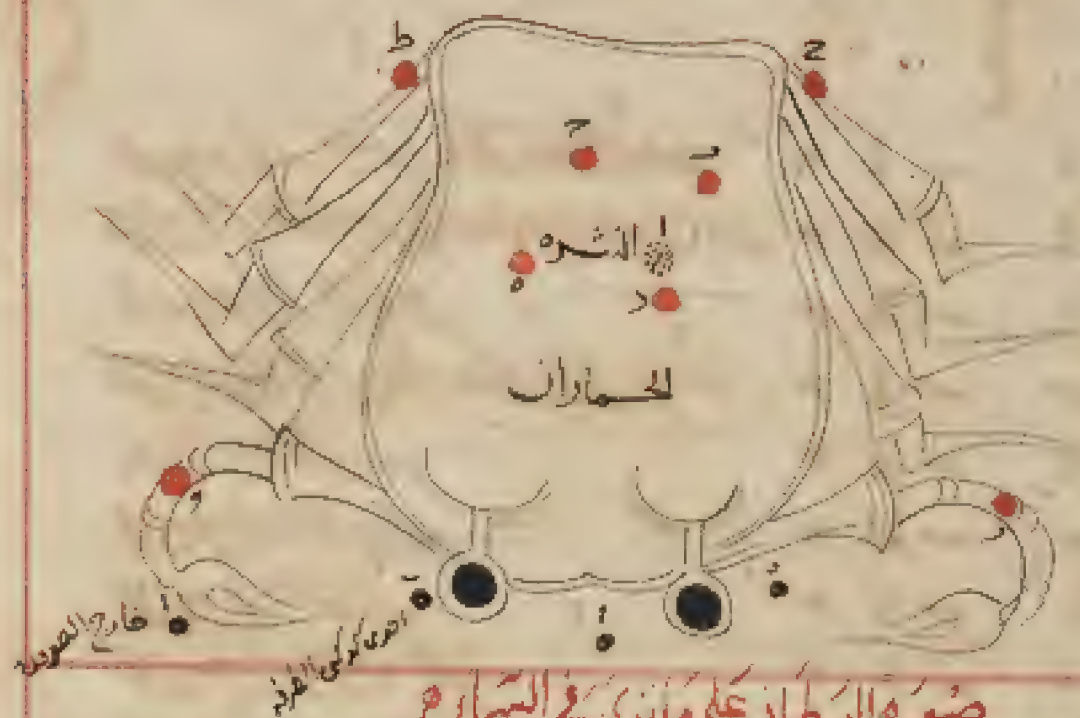 ط
ح
ح
ب
ا
النثره
ه
د
الحماران
و
ز
ا
خارج الصورة
احدى كوكبى الطرف
ا
صورة السرطان على ما يرى فى السماء